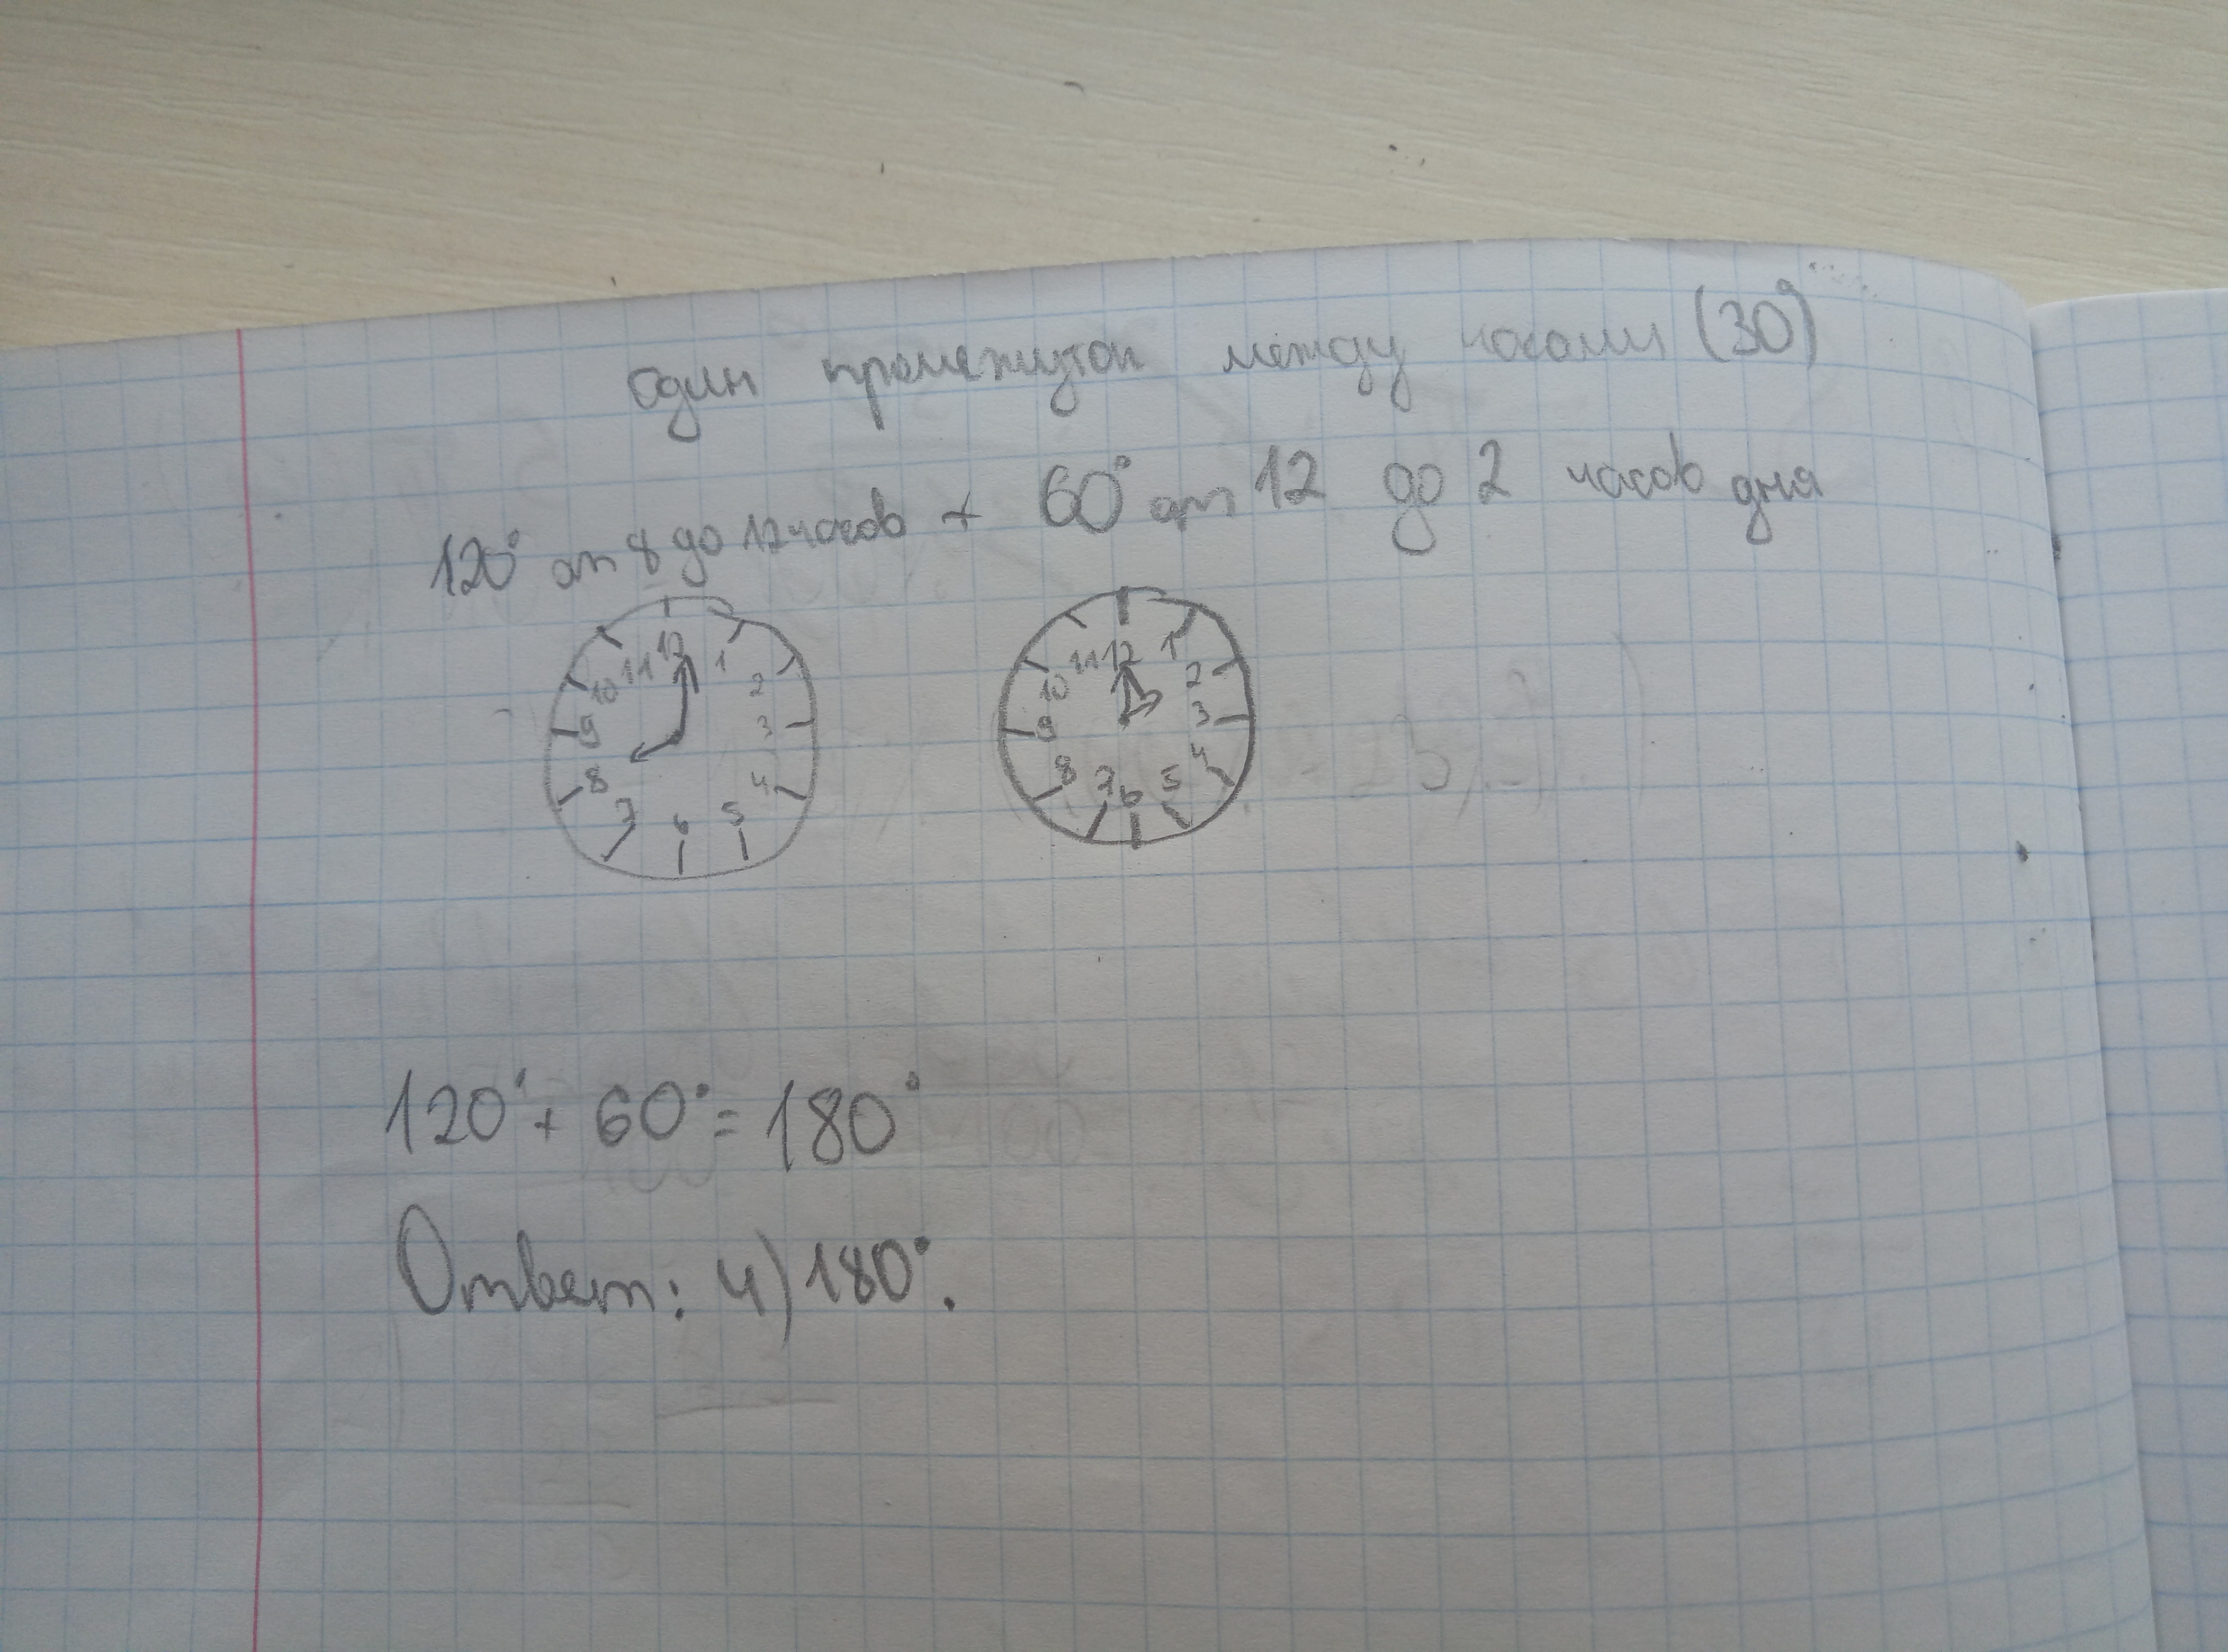 один промежуток между часами (30°)
120° от 8 до 12 часов + 60° от 12 до 2 часов дня
12 1 2 3 4 5 6 7 8 9 10 11
12 1 2 3 4 5 6 7 8 9 10 11
120° + 60° = 180°
Ответ: 4) 180°.